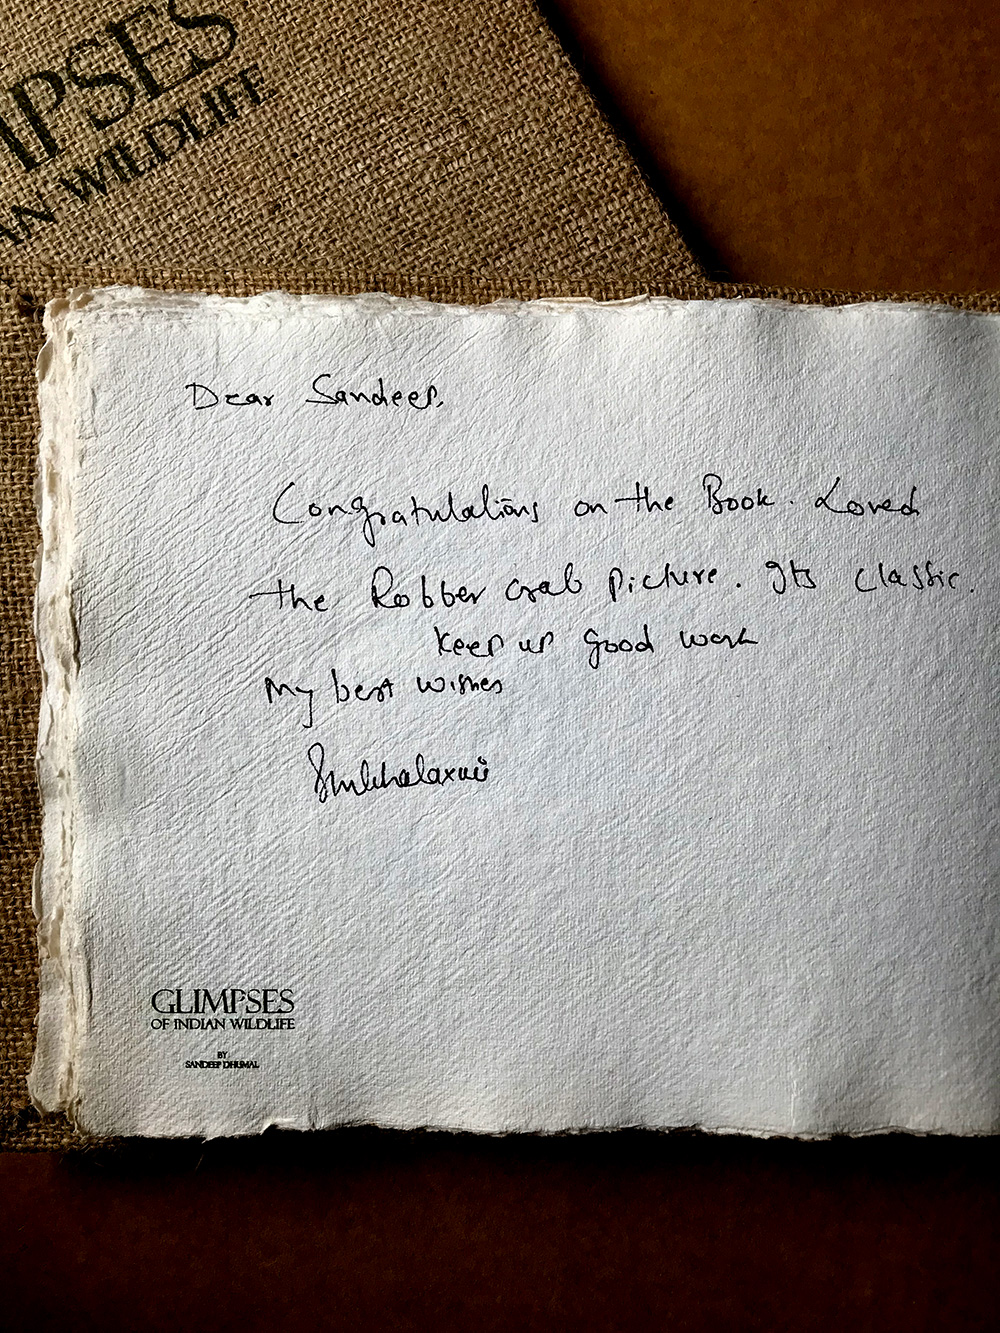 MPSES
AN WILDLIFE
Dear Sandeep,
Congratulations on the Book. Loved
the Robber crab picture. Its classic.
Keep up good work
My best wishes
GLIMPSES
OF INDIAN WILDLIFE
BY
SANDEEP DHUMAL